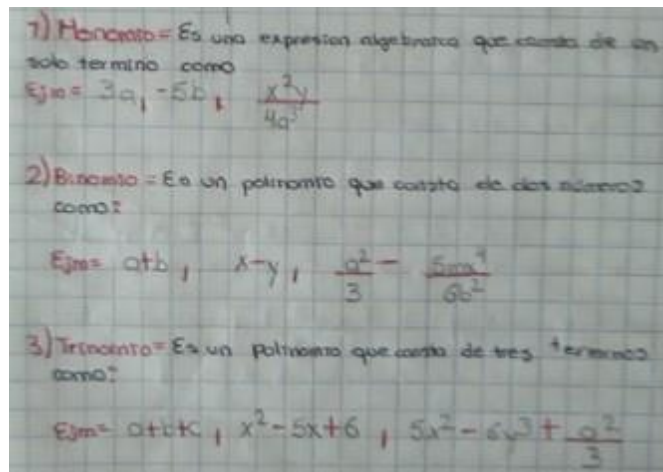 1) Monomio = Es una expresion algebraica que consta de un
solo termino como
Ejm = 3a, -5b, x²y/4a³
2) Binomio = Es un polinomio que consta de dos números
como:
Ejm = a+b, x-y, a²/3 - 5mx⁴/6b²
3) Trinomio = Es un polinomio que consta de tres terminos
como:
Ejm = a+b+c, x²-5x+6, 5x²-6y³+a²/3